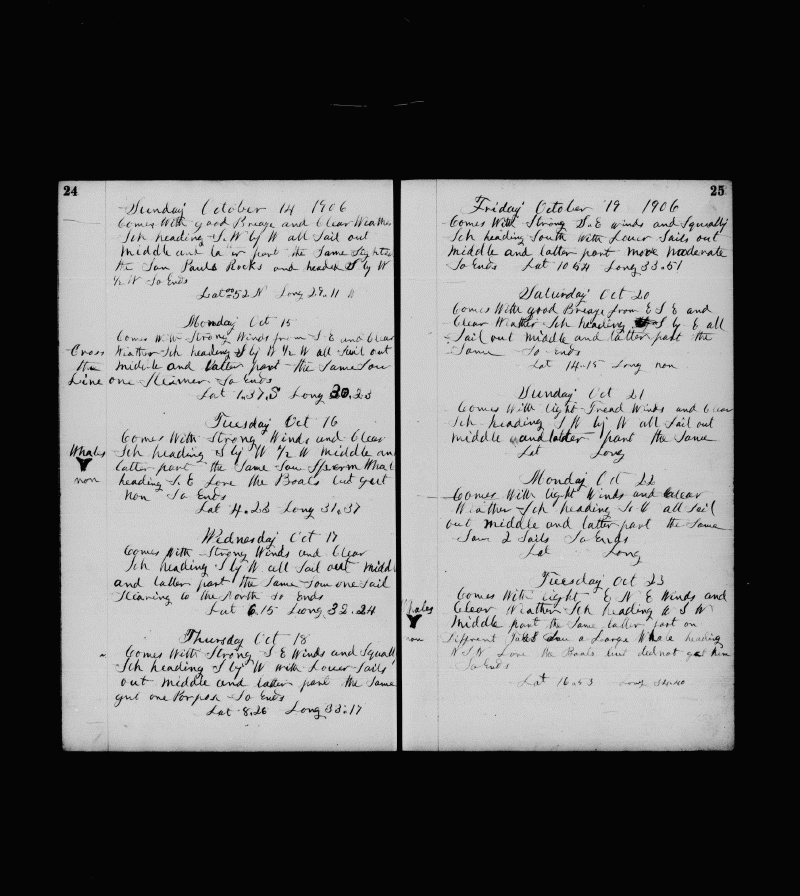 24
Sunday October 14 1906
Comes With good Breaze and Clear Weather
Sch heading S.W by W all Sail out
Middle and la er part the Same Sighted
the San Pauls Rocks and headed S by W
1/2 W So Ends
Lat 52 N Long 29.11 W
Monday Oct 15
Comes With Strong Winds from S E and Clear
Cross
Weather Sch heading S by W 1/2 W all Sail out
the
Middle and latter part the Same Saw
Line
one Steamer So Ends
Lat 1.37.S Long 30.23
Tuesday Oct 16
Comes With Strong Winds and Clear
Whales
Sch heading S by W 1/2 W Middle an
latter part the Same Saw Sperm Whal
non
heading S.E Lore the Boats but get
non So Ends
Lat 4.23 Long 31.37
Wednesday Oct 17
Comes With Strong Winds and Clear
Sch heading S by W all Sail out Midd
and latter part the Same Saw one Sail
Stearing to the North So Ends
Lat 6.15 Long 32.24
Thursday Oct 18
Comes With Strong S E Winds and Squall
Sch heading S by W With Lower Sails
out Middle and latter part the Same
gut one Porpos So Ends
Lat 8.26 Long 33.17
25
Friday October 19 1906
Comes With Strong S.E Winds and Squally
Sch heading South With Lower Sails out
Middle and latter part more moderate
So Ends Lat 10 54 Long 33.51
Saturday Oct 20
Comes With good Breaze from E S E and
Clear Weather Sch heading S by E all
Sail out Middle and latter part the
Same So Ends
Lat 14.15 Long non
Sunday Oct 21
Comes With light Tread Winds and Clear
Sch heading S W by W all Sail out
Middle and latter part the Same
Lat Long
Monday Oct 22
Comes With light Winds and Clear
Weather Sch heading S. W all Sail
out Middle and latter part the Same
Saw 2 Sails So Ends
Lat Long
Tuesday Oct 23
Comes With light E N E Winds and
Whales
Clear Weather Sch heading W S W
Middle part the Same latter part on
non
Different Saw a Large Whale heading
W S W Lore the Boats but did not get him
So Ends
Lat 16.53 Long 34.40